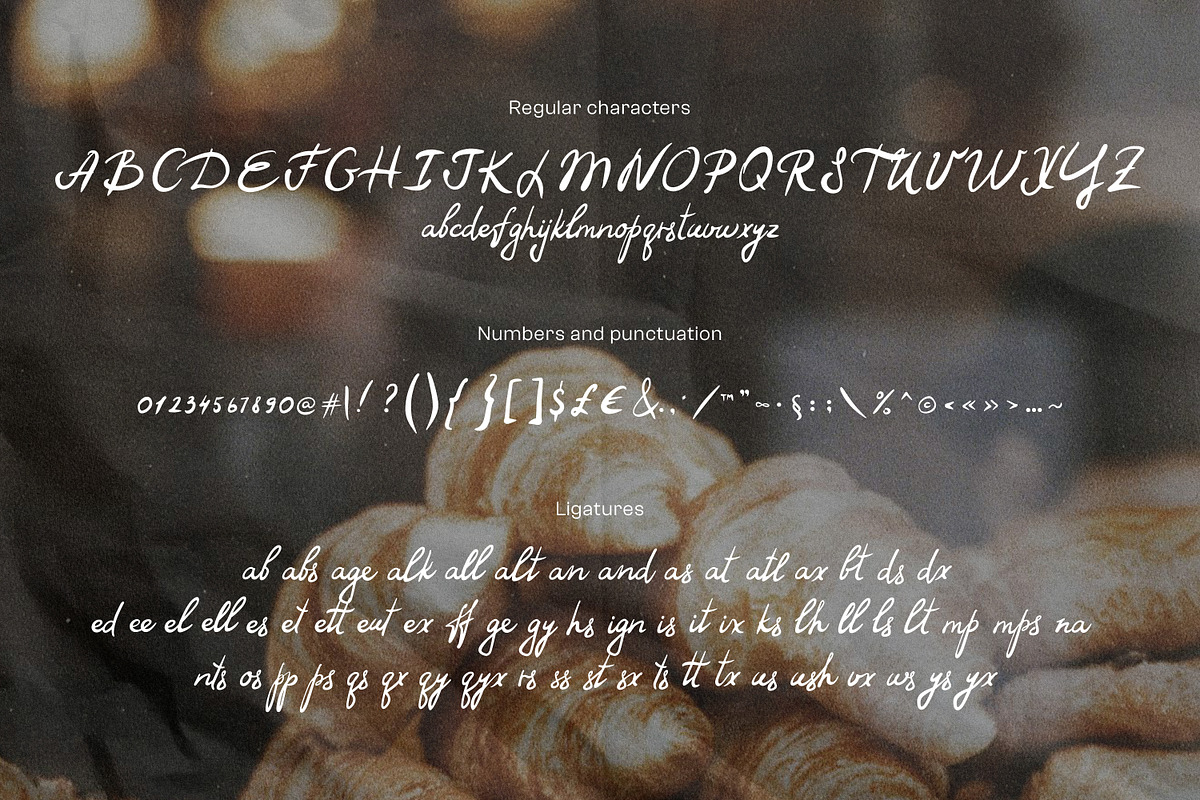 Regular characters
ABCDEFGHIJKLMNOPQRSTUVWXYZ
abcdefghijklmnopqrstuvwxyz
Numbers and punctuation
01234567890@#|!?(){}[]$£€&.,·/™"~·§:;\%^©<«»>…~
Ligatures
ab abs age alk all alt an and as at atl ax bt ds dx
ed ee el ell es et ett eut ex ff ge gy hs ign is it ix ks lh ll ls lt mp mps na
nts os pp ps qs qx qy qyx rs ss st sx ts tt tx us ush vx ws ys yx